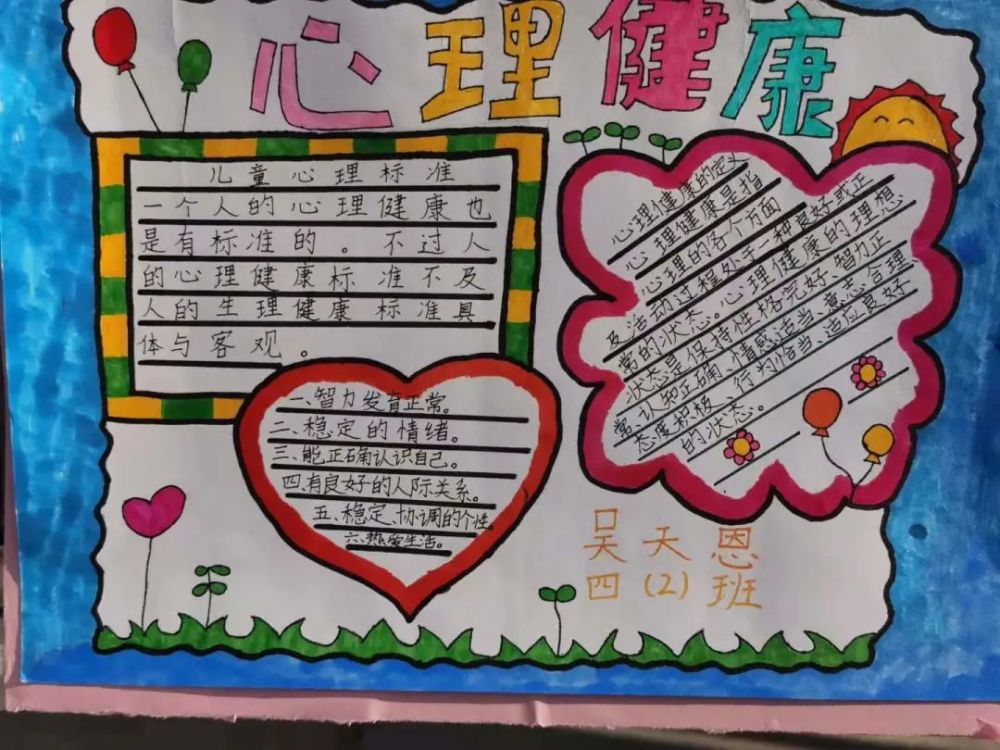 心理健康
儿童心理标准
一个人的心理健康也
是有标准的。不过人
的心理健康标准不及
人的生理健康标准具
体与客观。
一、智力发育正常。
二、稳定的情绪。
三、能正确认识自己。
四.有良好的人际关系。
五、稳定、协调的个性。
六、热爱生活。
心理健康的定义
心理健康是指
心理的各个方面
及活动过程处于一种良好或正
常的状态。心理健康的理想
状态是保持性格完好、智力正
常、认知正确、情感适当、意志合理、
态度积极、行为恰当、适应良好
的状态。
吴天恩
四(2)班